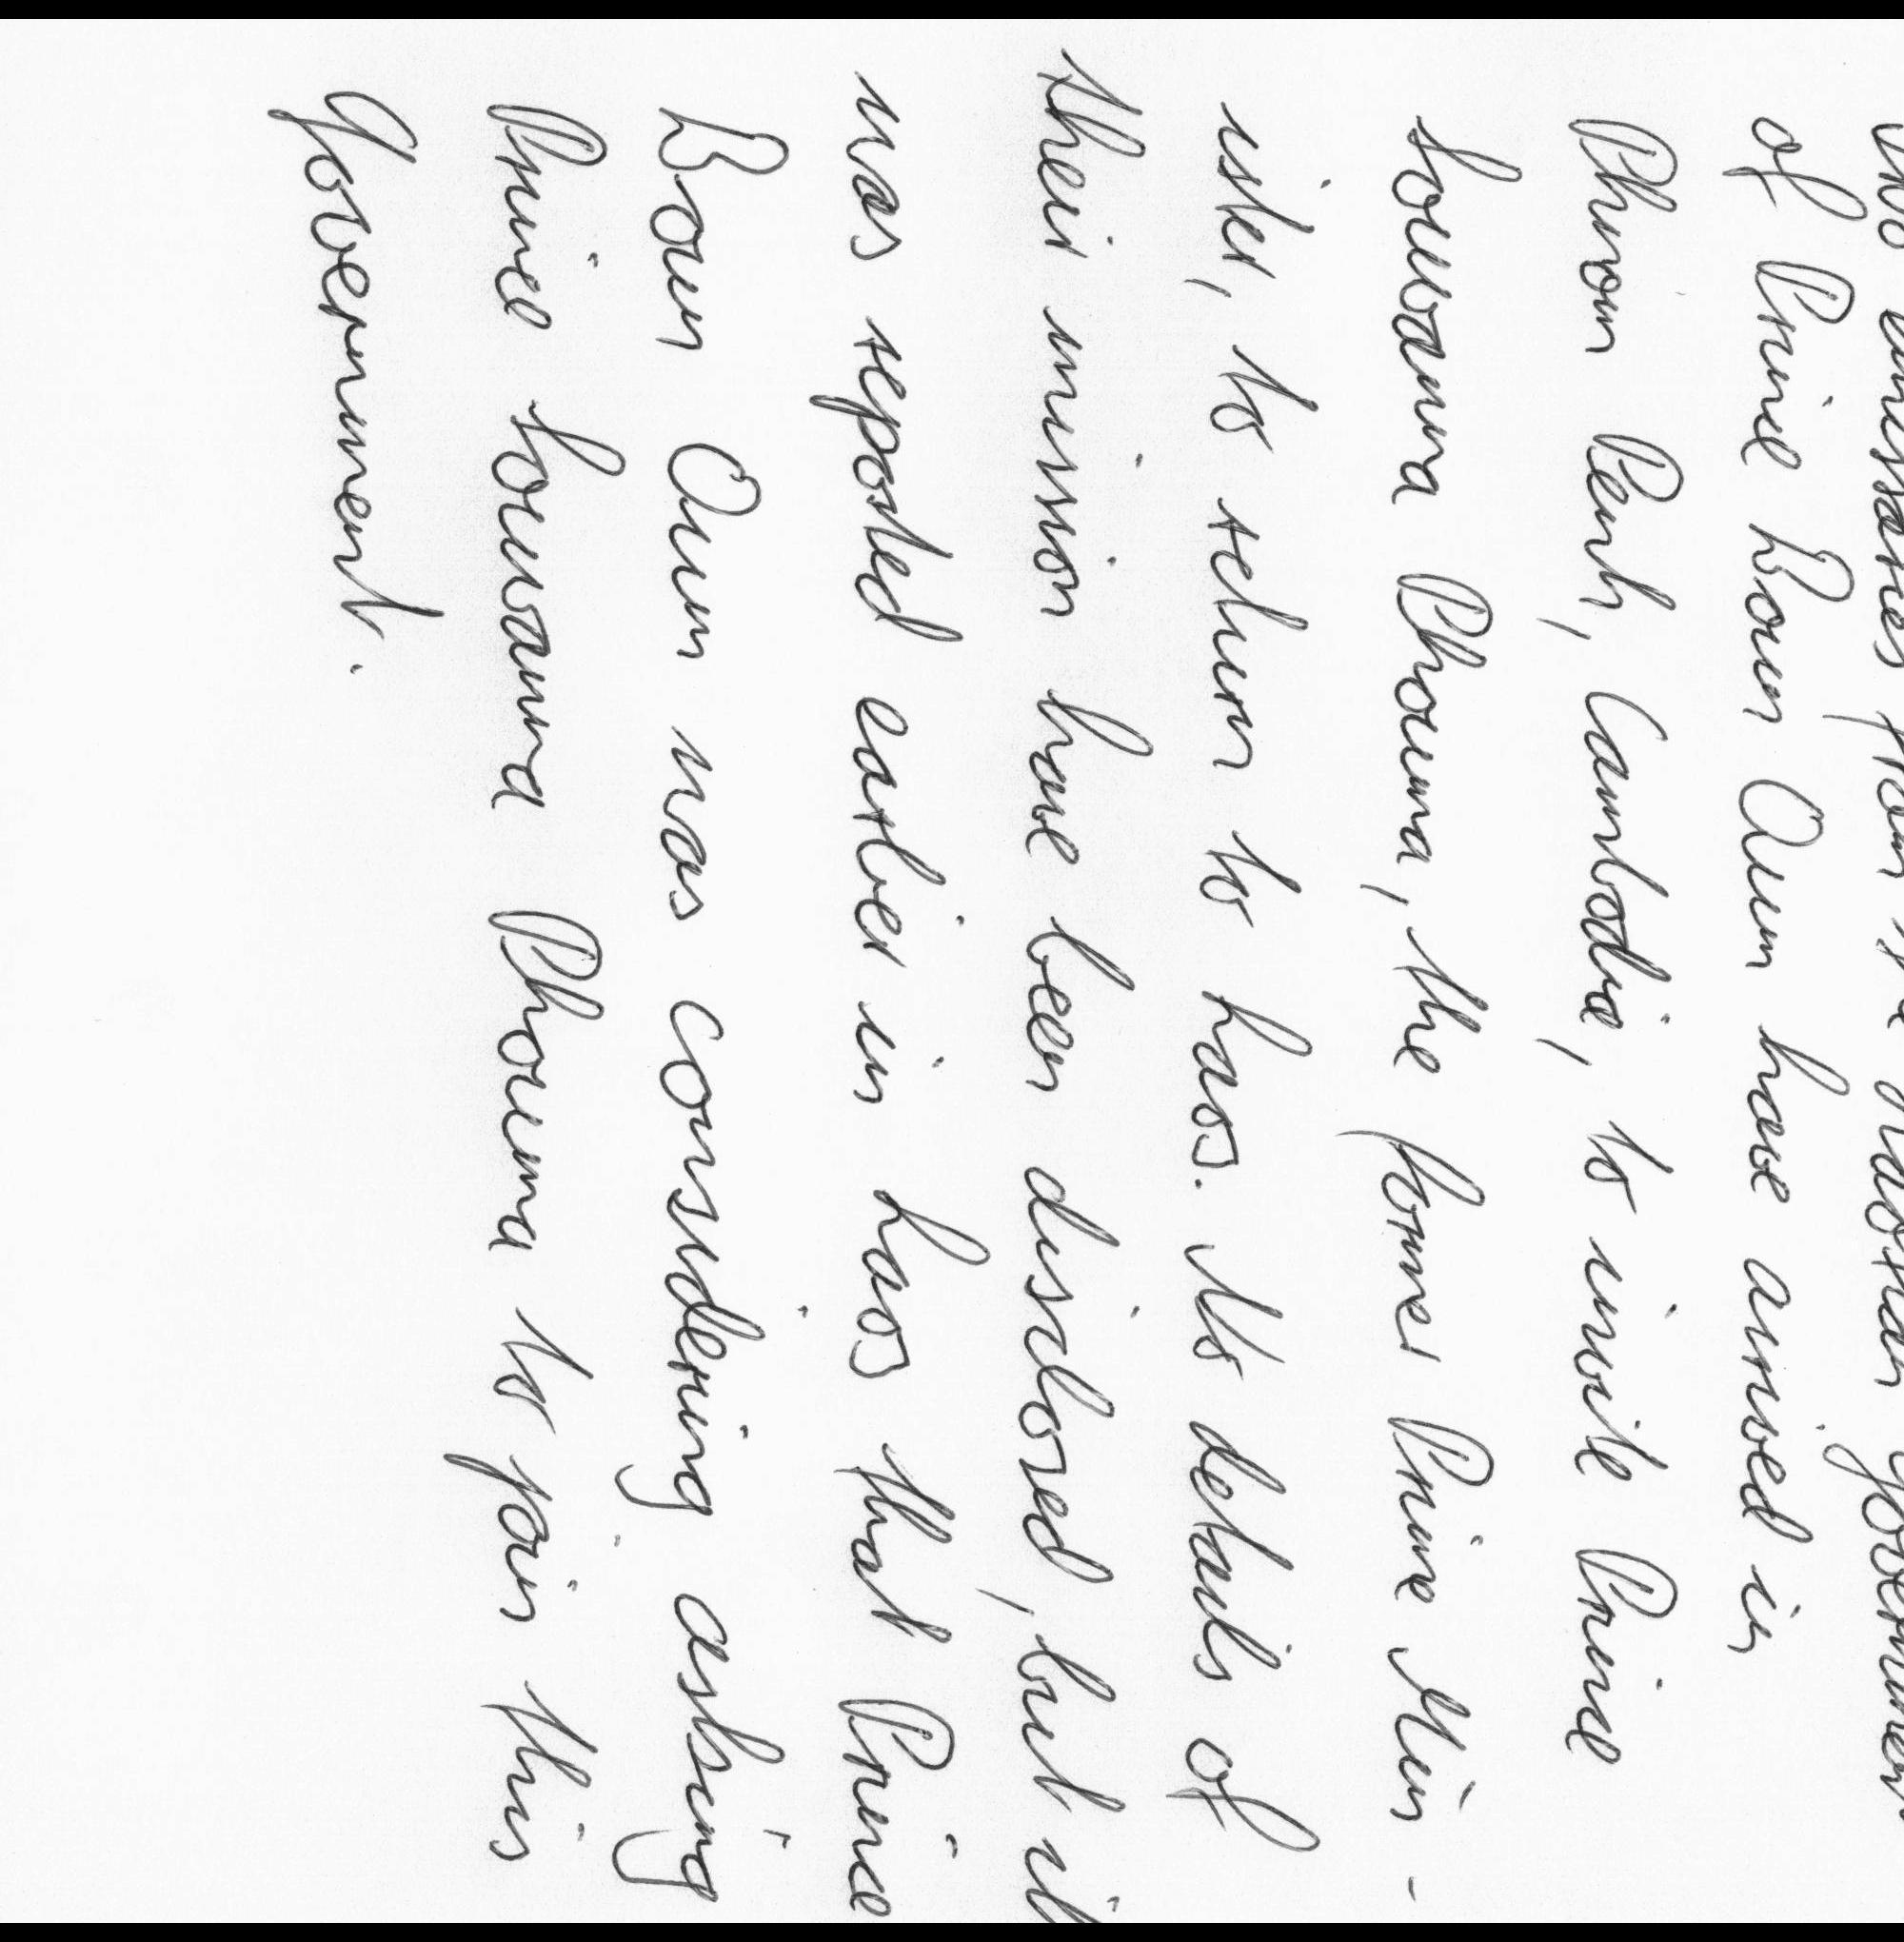 two emissaries from the Laotian Government
of Prince Boun Oum have arrived in
Phnom Penh, Cambodia, to invite Prince
Souvanna Phouma, the former Prime Min-
ister, to return to Laos. No details of
their mission have been disclosed, but it
was reported earlier in Laos that Prince
Boun Oum was considering asking
Prince Souvanna Phouma to join this
Government.